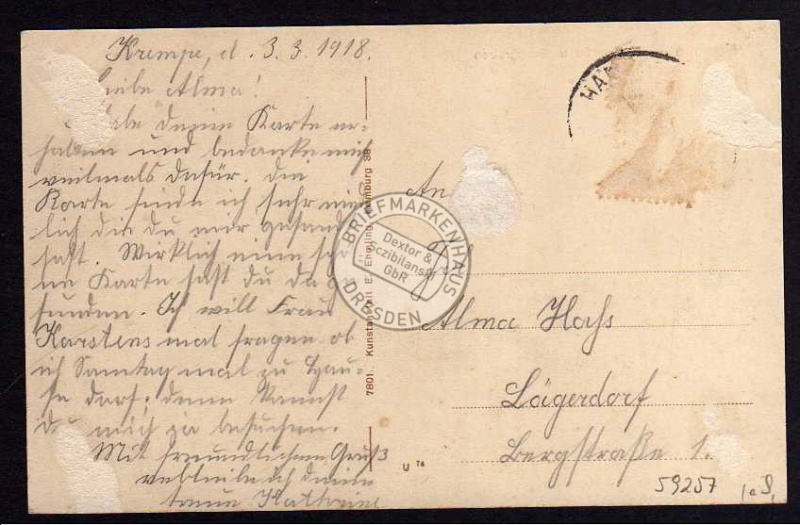 Krempe, d. 3.3.1918.
Liebe Alma!
Habe deine Karte er-
halten und bedanke mich
vielmals dafür. Die
Karte finde ich sehr nied-
lich die du mir gesand
hast. Wirklich eine schö-
ne Karte hast du da ge-
funden. Ich will Frau
Karstens mal fragen ob
ich Sonntag mal zu Hau-
se darf, denn kannst
du mich ja besuchen.
Mit freundlichem Gruß
verbleibe ich deine
Katharine
7801. Kunstanstalt E. Hamburg 38
HAM
BRIEFMARKENHAUS
Dexter &
Sczibilanski
GbR
DRESDEN
An
Alma Hass
Lägerdorf
Bergstraße 1.
U 76
59257